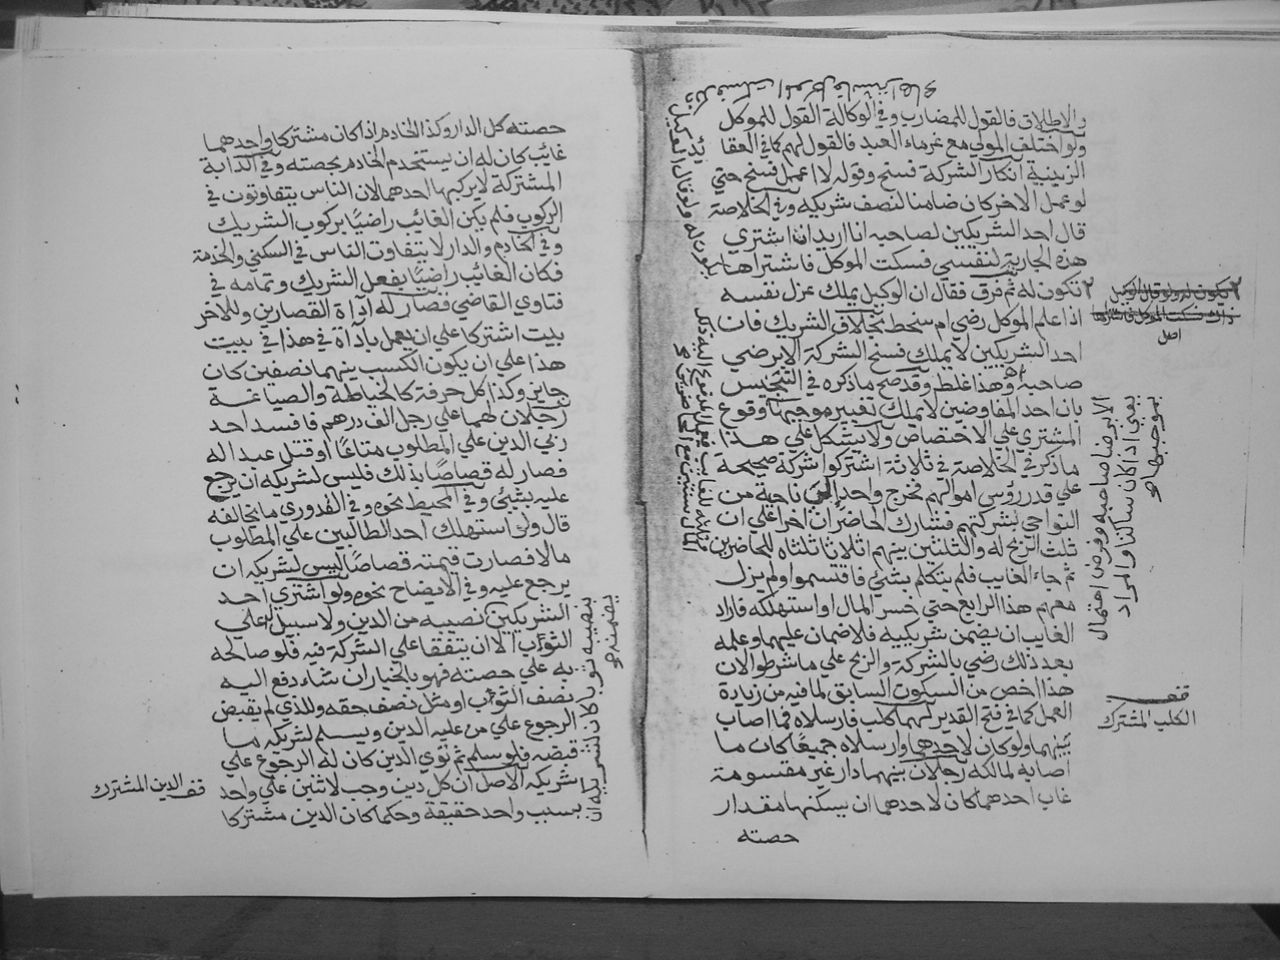 والاطلاق فالقول للمضارب وفي الوكالة القول للموكل
ولو اختلف المولي مع غرماء العبد فالقول لهم كما في العقا
الزينية انكار الشركة فسخ وقوله لا اعمل فسخ حتي
لو عمل الاخر كان ضامنا لنصف شريكه وفي الخلاصة
قال احد الشريكين لصاحبه انا اريد ان اشتري
هذه الجارية لنفسي فسكت الموكل فاشتراها
تكون له ثم فرق فقال ان الوكيل يملك عزل نفسه
اذا علم الموكل رضي ام سخط بخلاف الشريك فان
احد الشريكين لا يملك فسخ الشركة الا برضي
صاحبه وهذا غلط وقد صح ما ذكره في التجنيس
بان احد المفاوضين لا يملك تغيير موجبها وقوع
المشتري علي الاختصاص ولا يشكل علي هذا
ما ذكر في الخلاصة في ثلاثة اشتركوا شركة صحيحة
علي قدر رؤس اموالهم فخرج واحد الي ناحية من
النواحي لشركتهم فشارك الحاضران اخر علي ان
ثلث الربح له والثلثين بينهم اثلاثا ثلثاه للحاضرين
ثم جاء الغايب فلم يتكلم بشئ فاقتسموا ولم يزل
معهم هذا الرابع حتي خسر المال او استهلكه فاراد
الغايب ان يضمن شريكيه فلا ضمان عليهما وعلمه
بعد ذلك رضي بالشركة والربح علي ما شرطوا لان
هذا اخص من السكوت السابق لما فيه من زيادة
العمل كما في فتح القدير لهما كلب فارسلاه فما اصاب
بينهما ولو كان لاحدهما وارسلاه جميعا كان ما
اصابه لمالكه رجلان بينهما دار غير مقسومة
غاب احدهما كان لاحدهما ان يسكنها مقدار
حصته
اصل
الا برضا صاحبه وفرض احتمال
يعني اذا كان ساكتا والمراد
بموجبها
قف
الكلب المشترك
حصته كل الدار وكذا الخادم اذا كان مشتركا واحدهما
غائب كان له ان يستخدم الخادم بحصته وفي الدابة
المشتركة لا يركبها احدهما لان الناس يتفاوتون في
الركوب فلم يكن الغائب راضيا بركوب الشريك
وفي الخادم والدار لا يتفاوت الناس في السكني والخدمة
فكان الغائب راضيا بفعل الشريك وتمامه في
فتاوي القاضي قصار له اداة القصارين وللاخر
بيت اشتركا علي ان يعمل باداة هذا في بيت
هذا علي ان يكون الكسب بينهما نصفين كان
جايز وكذا كل حرفة كالخياطة والصياغة
رجلان لهما علي رجل الف درهم فافسد احد
ربي الدين علي المطلوب متاعا او قتل عبدا له
فصار له قصاصا بذلك فليس لشريكه ان يرجع
عليه بشئ وفي المحيط نحوه وفي القدوري ما يخالفه
قال ولو استهلك احد الطالبين علي المطلوب
مالا فصارت قيمته قصاصا ليس لشريكه ان
يرجع عليه وفي الايضاح نحوه ولو اشتري احد
الشريكين نصيبه من الدين ولا سبيل له علي
الثوب الا ان يتفقا علي الشركة فيه فلو صالحه
به علي حصته فهو بالخيار ان شاء دفع اليه
نصف الثوب او مثل نصف حقه وللذي لم يقبض
الرجوع علي من عليه الدين ويسلم لشريكه ما
قبضه فلو سلم ثم توي الدين كان له الرجوع علي
شريكه الاصل ان كل دين وجب لاثنين علي واحد
بسبب واحد حقيقة وحكما كان الدين مشتركا
بنصيبه ثوبا كان لشريكه ان
يضمنه
قف الدين المشترك